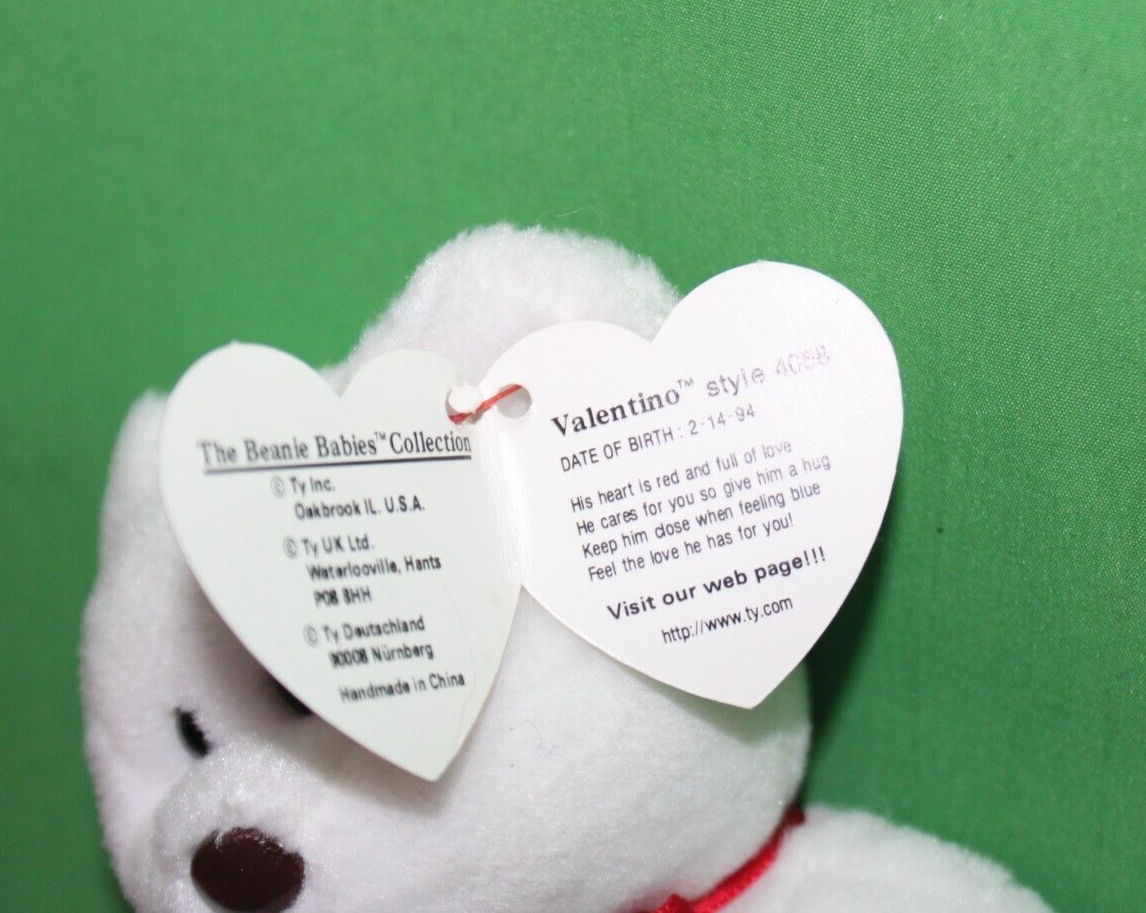 The Beanie Babies™ Collection
© Ty Inc.
Oakbrook IL. U.S.A.
© Ty UK Ltd.
Waterlooville, Hants
P08 8HH
© Ty Deutschland
90008 Nürnberg
Handmade in China
Valentino™ style 4058
DATE OF BIRTH : 2-14-94
His heart is red and full of love
He cares for you so give him a hug
Keep him close when feeling blue
Feel the love he has for you!
Visit our web page!!!
http://www.ty.com